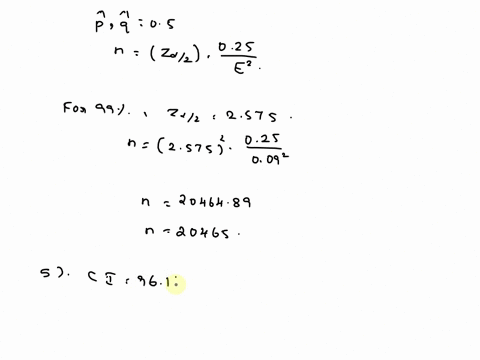 p̂, q̂ : 0.5
n = (Zα/2) . 0.25 / E².
For 99%. , Zα/2 : 2.575 .
n = (2.575)² . 0.25 / 0.09²
n = 20464.89
n = 20465 .
5). C I : 96.1: